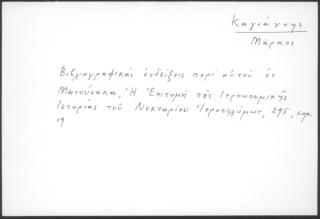 Καγιάννης
Μάρκος
Βιβλιογραφικὰς ἐνδείξεις περὶ αὐτοῦ ἐν
Μανούσακα, Ἡ Ἐπιτομὴ τῆς Ἱεροκοσμικῆς
Ἱστορίας τοῦ Νεκταρίου Ἱεροσολύμων, 295, σημ.
19